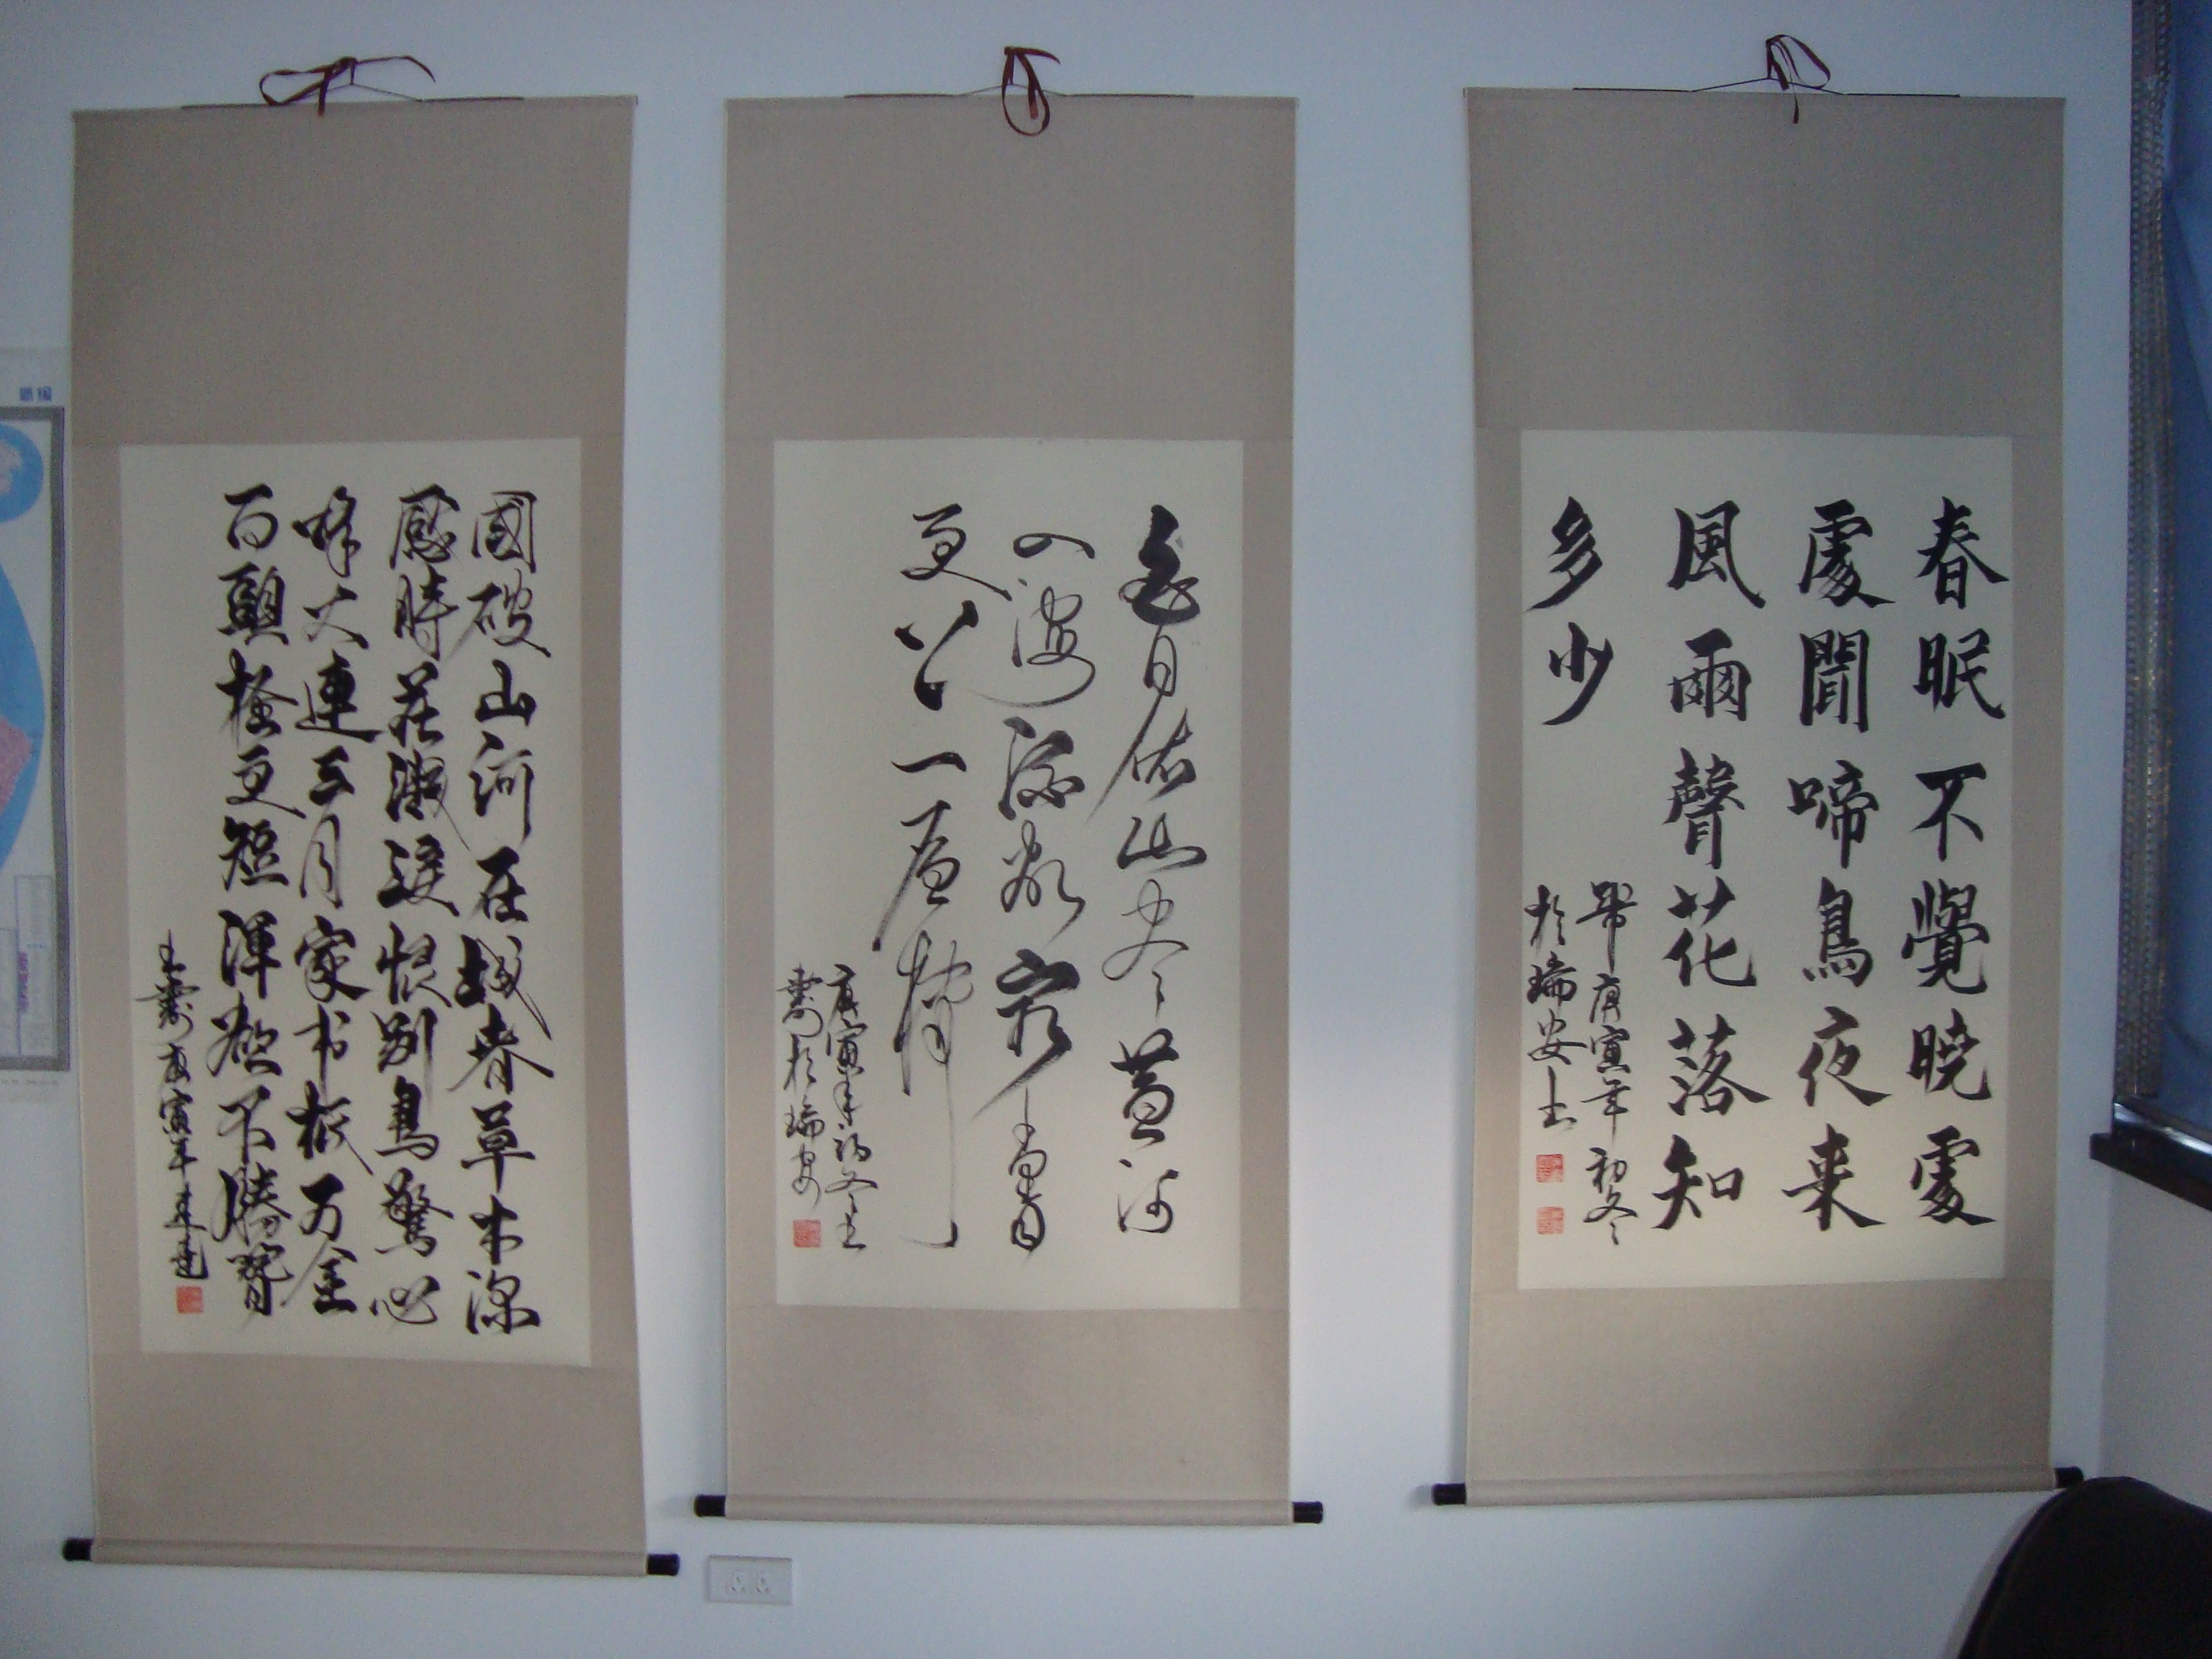 春眠不覺曉處
處聞啼鳥夜来
風雨聲花落知
多少
庚寅年初冬
於瑞安王
白日依山尽黄河
入海流欲窮千里目
更上一層樓
庚寅年初冬王
於瑞安
國破山河在城春草木深
感時花濺淚恨别鳥驚心
烽火連三月家书抵万金
白頭搔更短渾欲不勝簪
庚寅年